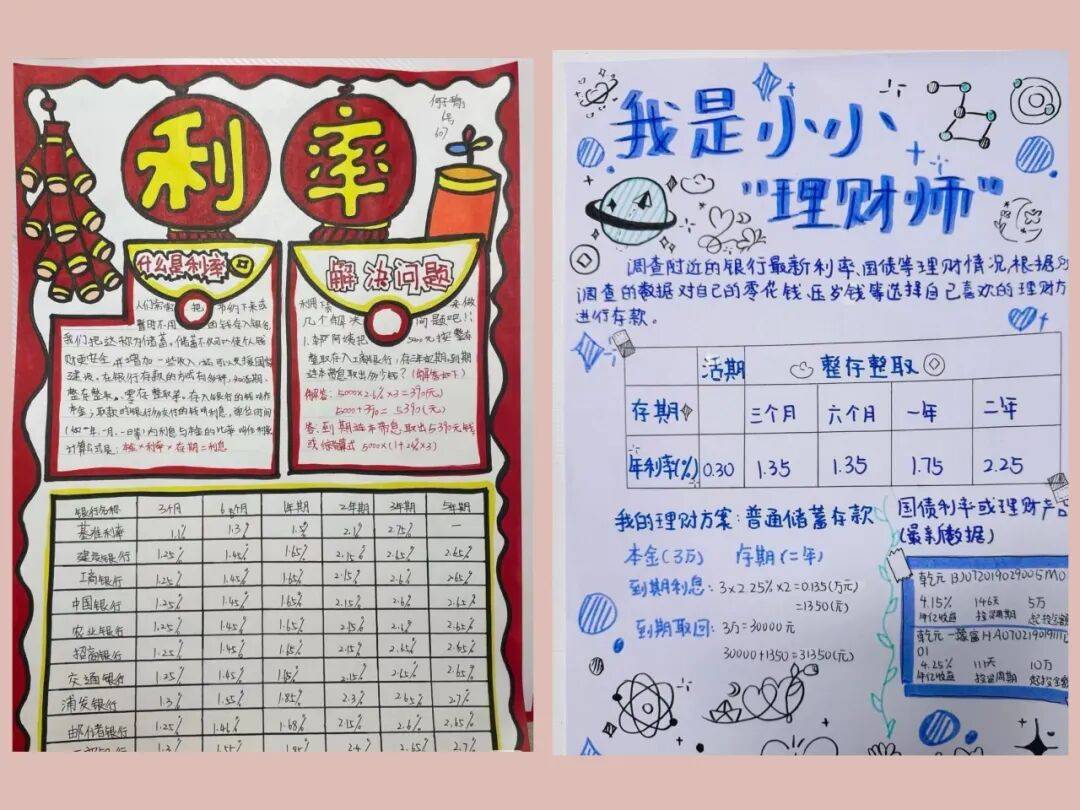 利率
何
6号
607
什么是利率
人们常常把 节约下来或
暂时不用 钱存入银行
我们把这称为储蓄。储蓄不仅可以使个人钱
财更安全,并增加一些收入,还可以支援国家
建设。在银行存款的方式有多种,如活期、
整存整取、零存整取等。存入银行的钱叫作
本金;取款时银行多支付的钱叫利息。单位时间
(如一年、一月、一日等)内利息与本金的比率叫作利率
计算公式是:本金×利率×存期=利息
解决问题
利用 来做
几个解决 问题吧!!
1. 阿姨把5000元按整存
整取存入工商银行,存三年定期,到期
连本带息取出多少钱?(解答如下)
解答:5000×2.6%×3=390(元)
5000+390=5390(元)
答:到期连本带息取出5390元钱
或 5000×(1+2.6%×3)
银行名称 3个月 6个月 1年期 2年期 3年期 5年期
基准利率 1.1% 1.3% 1.5% 2.1% 2.75% —
建设银行 1.25% 1.45% 1.65% 2.15% 2.65% 2.65%
工商银行 1.25% 1.45% 1.65% 2.15% 2.6% 2.65%
中国银行 1.25% 1.45% 1.65% 2.15% 2.6% 2.65%
农业银行 1.25% 1.45% 1.65% 2.15% 2.6% 2.65%
招商银行 1.25% 1.45% 1.65% 2.15% 2.65% 2.65%
交通银行 1.25% 1.45% 1.65% 2.15% 2.65% 2.65%
浦发银行 1.3% 1.55% 1.85% 2.3% 2.65% 2.7%
邮储银行 1.25% 1.46% 1.68% 2.15% 2.6% 2.65%
1.3 1.55% 2.4 2.65% 2.7%
我是小小
“理财师”
调查附近的银行最新利率、国债等理财情况,根据
调查的数据对自己的零花钱、压岁钱等选择自己喜欢的理财方
进行存款。
活期 整存整取
存期 三个月 六个月 一年 二年
年利率(%) 0.30 1.35 1.35 1.75 2.25
我的理财方案:普通储蓄存款
本金(3万) 存期(二年)
到期利息:3×2.25%×2=0.135(万元)
=1350(元)
到期取回:3万=30000元
30000+1350=31350(元)
国债利率或理财产
(最新数据)
乾元 BJ072019029005M0
4.15% 146天 5万
年化收益 投资周期 起投金额
乾元一 富HA070219019111
01
4.25% 111天 10万
年化收益 投资周期 起投金额